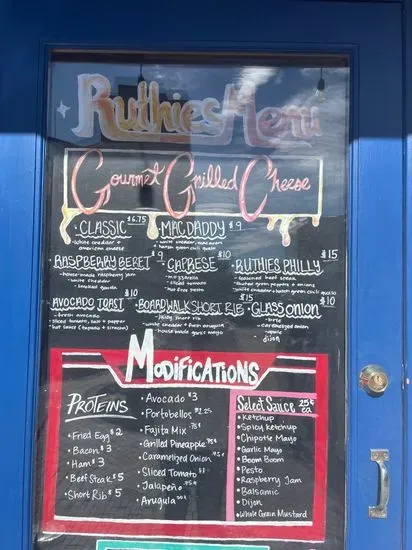 Ruthies Menu
Gourmet Grilled Cheese
• CLASSIC $6.75
• white cheddar +
american cheese
• MAC DADDY $9
• white cheddar, macaroni
+ hatch green chili queso
• RASPBERRY BERET $9
• house-made raspberry jam
• white cheddar
• smoked gouda
• CAPRESE $10
• mozzarella
• sliced tomato
• nut free pesto
• RUTHIES PHILLY $15
• seasoned beef steak
• roasted green peppers + onions
• white cheddar + hatch green chili queso
AVOCADO TOAST $10
• fresh avocado
• sliced tomato, salt + pepper
• hot sauce (tapatio + siracha)
• BOARDWALK SHORT RIB $15
short rib
• white cheddar + fresh arugula
• house made garlic mayo
• GLASS ONION $10
• brie
• caramelized onion
• apple
• dijon
MODIFICATIONS
PROTEINS
• Fried Egg $2
• Bacon $3
• Ham $3
• Beef Steak $5
• Short Rib $5
• Avocado $3
• Portobellos $1.25
• Fajita Mix .75¢
• Grilled Pineapple .95¢
• Caramelized Onion .95¢
• Sliced Tomato
• Jalapeño .75¢
• Arugula
Select Sauce 25¢ ea
• Ketchup
• Spicy Ketchup
• Chipotle Mayo
• Garlic Mayo
• Boom Boom
• Pesto
• Raspberry Jam
• Balsamic
• Dijon
• Whole Grain Mustard